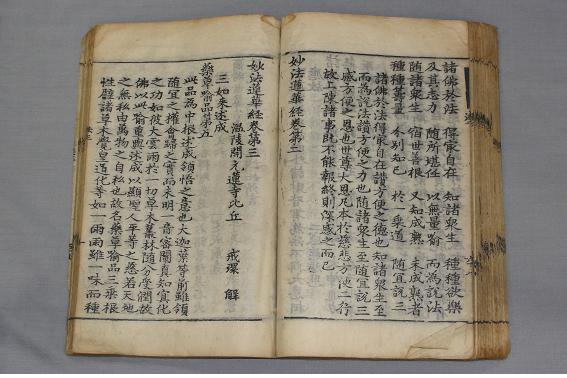 諸佛於法 得最自在 知諸衆生 種種欲樂
及其志力 隨所堪任 以無量喻 而為說法
隨諸衆生 宿世善根 又知成熟 未成熟者
種種籌量 分別知已 於一乘道 隨宜說三
諸佛於法得最自在讃方便之德也知諸衆生至
而為說法讃方便之力也隨諸衆生至隨宜說三
感方便之恩也世尊大恩凡本於慈悲方便二行
故上陳諸事旣不能報終則深感之而已
妙法蓮華經卷第二
妙法蓮華經卷第三
溫陵開元蓮寺比丘 戒環 解
三如來述成
藥草喻品第五
此品為中根述成領悟之意也大迦葉等前雖領
隨宜之權會歸之實而未明一音密闡眞知冥化
之功如彼大雲雨於一切草木叢林隨分受潤故
佛以此喻重與述成以顯聖人平等之慈若天地
之無私由萬物之自私也故名藥草喻品三乘根
性譬諸草木覺皇道化等如一雨雨雖一味而種